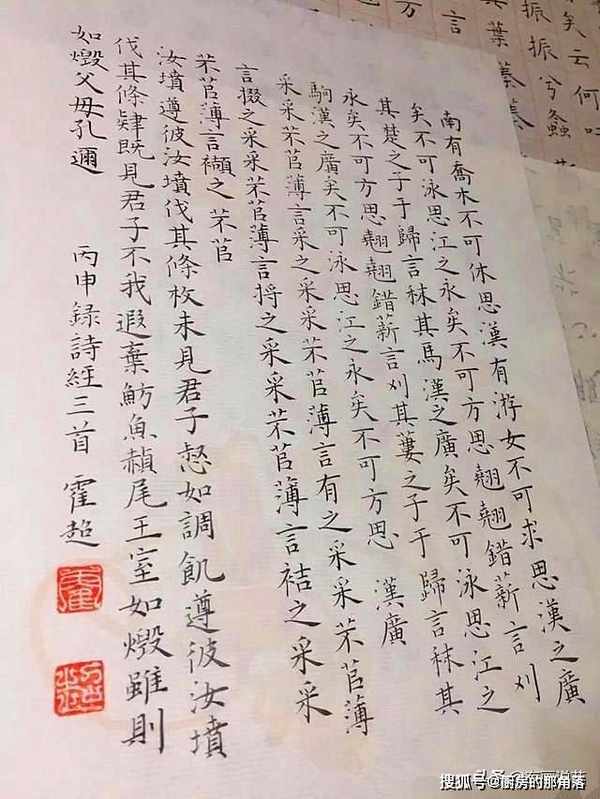 南有喬木不可休思漢有游女不可求思漢之廣
矣不可泳思江之永矣不可方思翹翹錯薪言刈
其楚之子于歸言秣其馬漢之廣矣不可泳思江之
永矣不可方思翹翹錯薪言刈其蔞之子于歸言秣其
駒漢之廣矣不可泳思江之永矣不可方思 漢廣
采采芣苢薄言采之采采芣苢薄言有之采采芣苢薄
言掇之采采芣苢薄言捋之采采芣苢薄言袺之采采
芣苢薄言襭之 芣苢
汝墳遵彼汝墳伐其條枚未見君子惄如調飢遵彼汝墳
伐其條肄既見君子不我遐棄魴魚赬尾王室如燬雖則
如燬父母孔邇 丙申録詩經三首 霍超
矣云何
振振兮螽
其葉蓁蓁
言
搜狐号@厨房的那角落